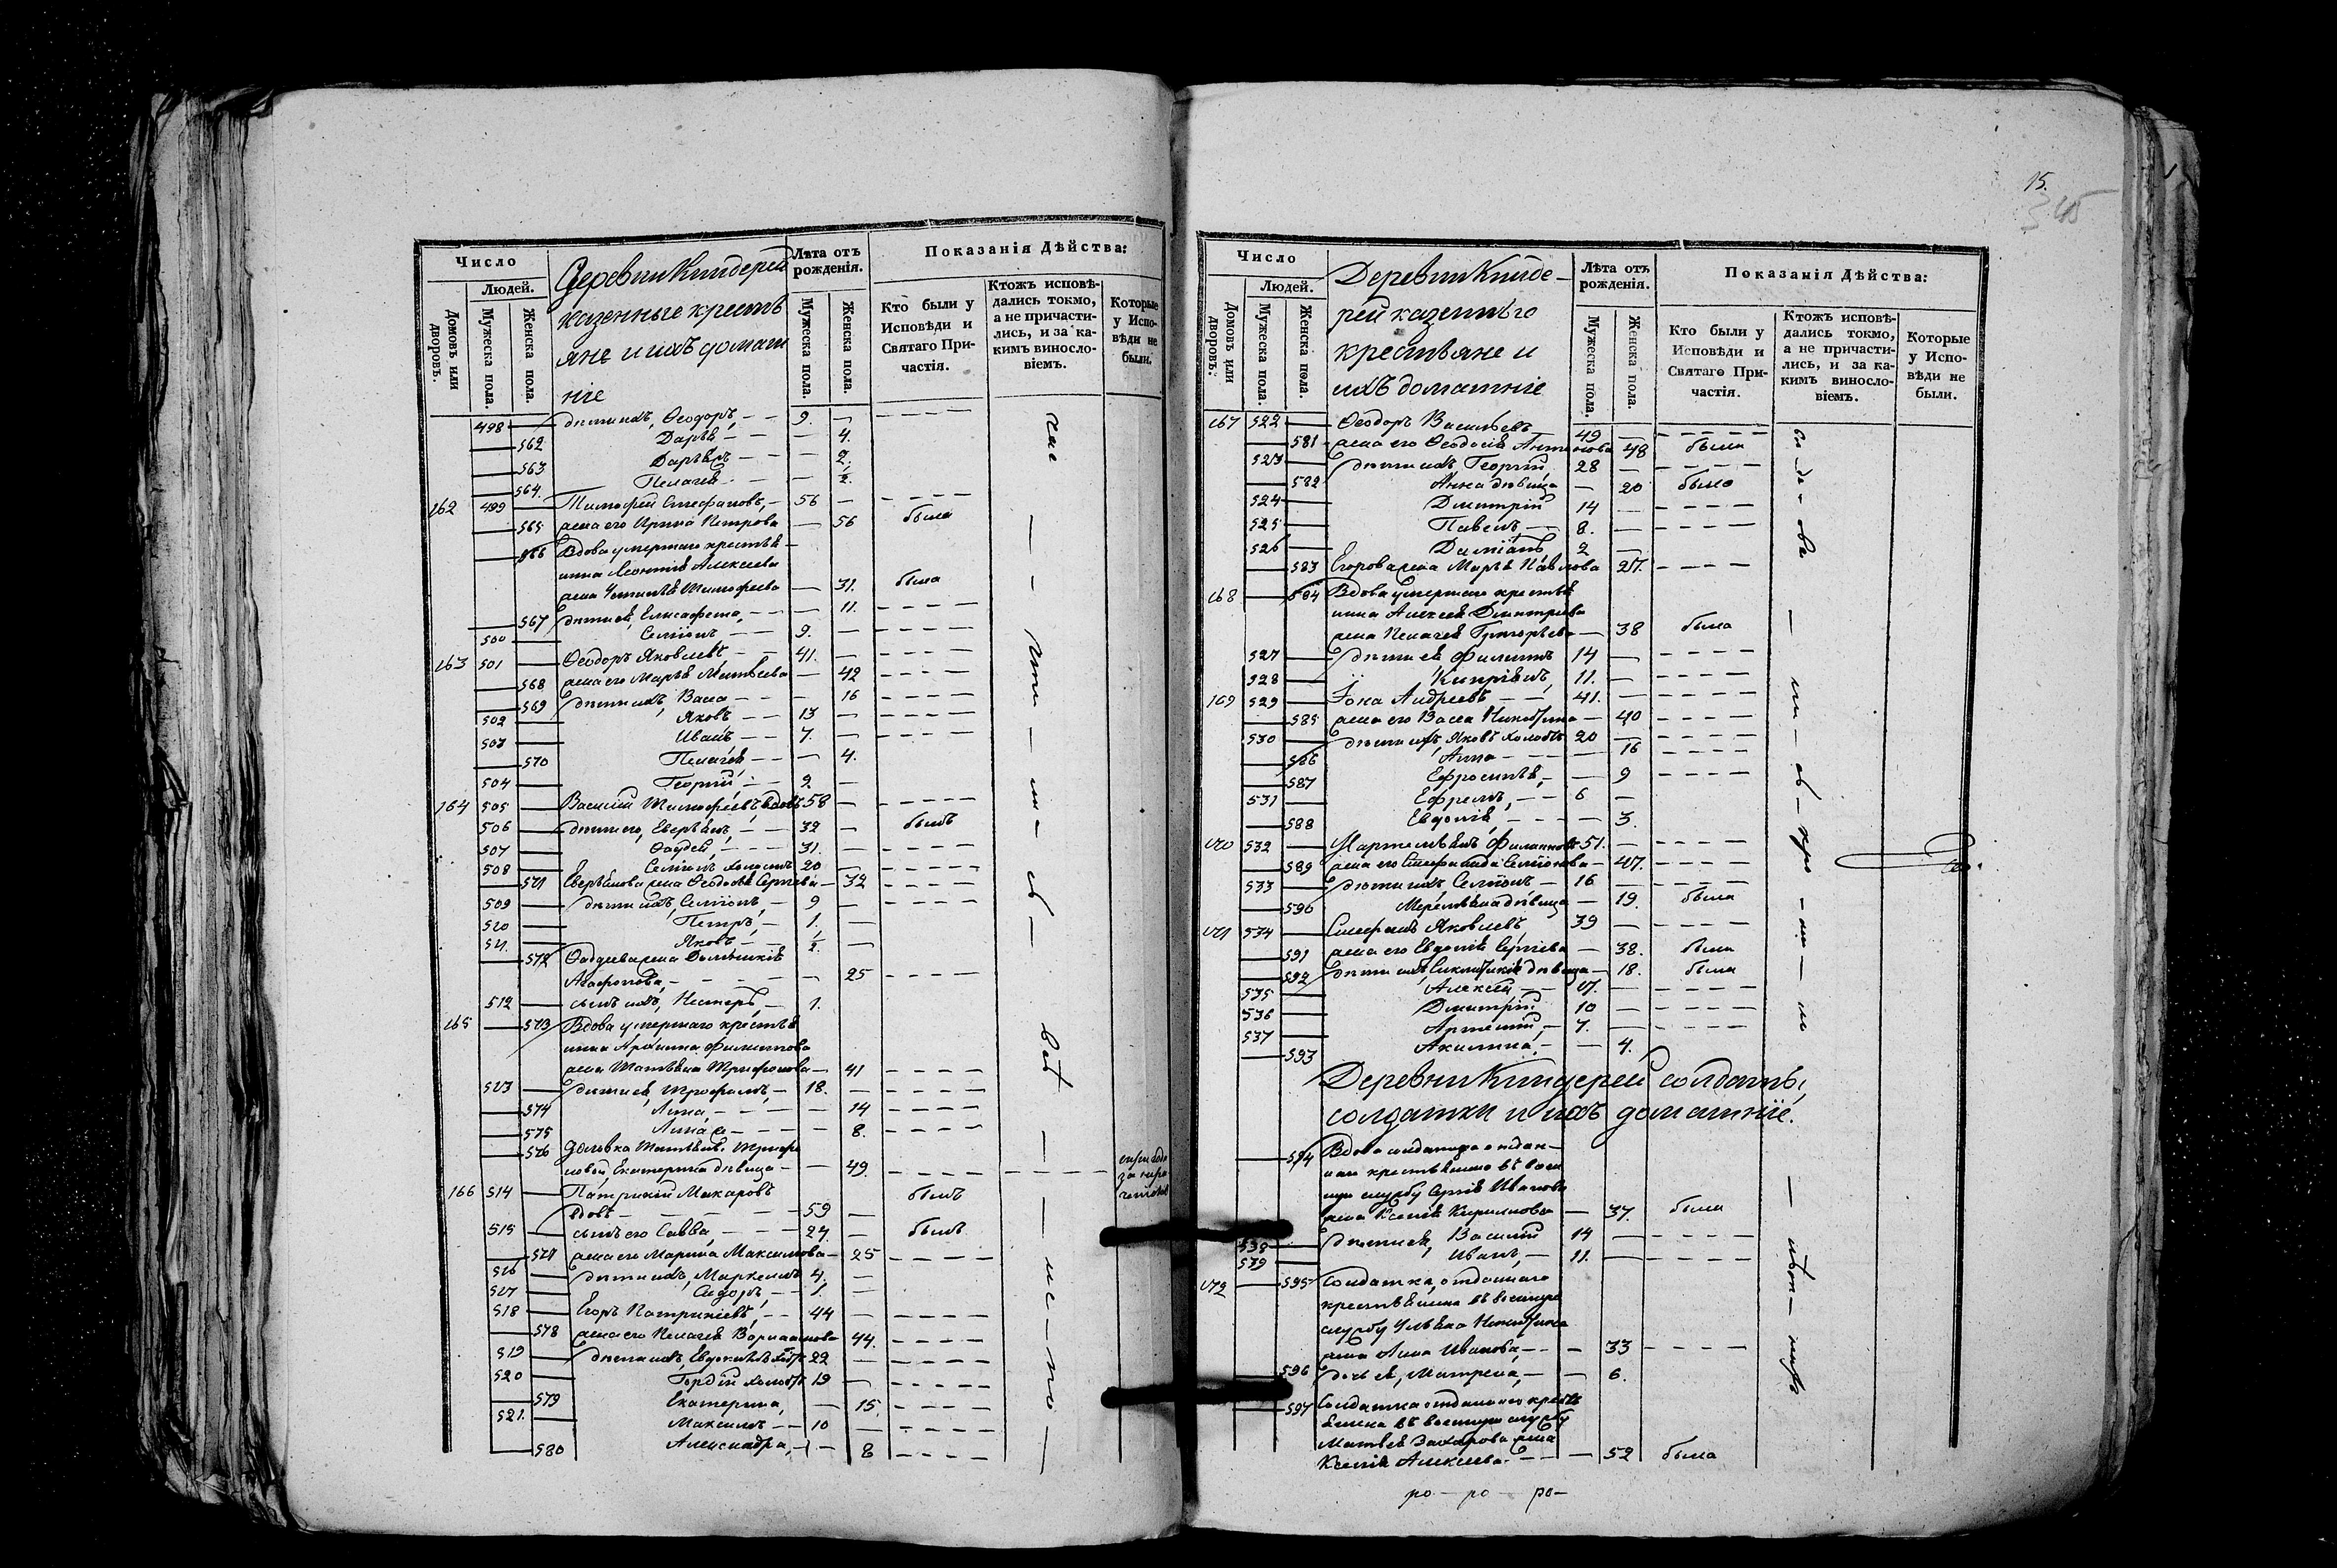 Число
Людей.
Домовъ или дворовъ.
Мужеска пола.
Женска пола.
Деревни Киндерей
казенные кресть
яне и ихъ домаш
ніе
Лѣта отъ рожденія.
Мужеска пола.
Женска пола.
Показанія Дѣйства:
Кто были у Исповѣди и Святаго При- частія.
Ктожъ исповѣ- дались токмо, а не причасти- лись, и за ка- кимъ винослo- віемъ.
Которые у Испо- вѣди не были.
498 — дѣти ихъ, Ѳеодоръ, 9. —
— 562 Дарья — 4.
— 563 Дарья — 2.
— 564. Пелагея — 1/2.
162 499 — Тимофей Стефановъ, 56 —
— 565 жена его Ирина Петрова — 56 была
— 566 Вдова умершаго крестья
нина Леонтія Алексеева
жена Устинья Тимофеева — 31. была
— 567 дѣти ея, Елисафета, — 11.
500 — Семіонъ 9. —
163 501 — Ѳеодоръ Яковлевъ 41. —
— 568 жена его Марья Матвеева — 42
— 569 дѣти ихъ, Васса — 16
502 — Яковъ 13 —
503 — Иванъ 7. —
— 570 Пелагея — 4.
504 — Георгій 2 —
164 505 — Василій Тимофеевъ, вдовъ 58 —
506 — дѣти его, 32 — былъ
507 — Ѳаддей 31. —
508 — Семіонъ холостъ 20 —
— 571 жена Ѳеодосья Сергеева — 32
509 — дѣти ихъ, Семіонъ, 9 —
510 — Петръ 1. —
511. — Яковъ 1/2. —
— 572 Ѳаддеева жена Домникія
Агафонова — 25
512 — сынъ ихъ, Несторъ, 1.
165 — 573 Вдова умершаго крестья
нина Филиппова
жена Татьяна Трифонова — 41
513 — дѣти ея, Трофимъ, 18. —
— 574 Анна — 14
— 575 Анна — 8.
— 576 Татьяны Трифо
новой, Екатерина дѣвица — 49.
166 514 — Патрикій Макаровъ былъ
вдовъ 59 —
515 — сынъ его Савва 27. — былъ
— 577 жена его Марина Максимова — 25
516 — дѣти ихъ, Маркеллъ 4. —
517 — Сидоръ 1 —
518 — Егоръ Патрикіевъ 44 —
— 578 жена его Пелагея Варламова 44.
519 — дѣти ихъ, Евдокимъ 22 —
520 — Гордій холостъ 19 —
— 579 Екатерина, — 15.
521. — Максимъ 10 —
— 580 Александра, — 8
15.
Число
Людей.
Домовъ или дворовъ.
Мужеска пола.
Женска пола.
Деревни Кинде-
рей казенные
крестьяне и
ихъ домашніе
Лѣта отъ рожденія.
Мужеска пола.
Женска пола.
Показанія Дѣйства:
Кто были у Исповѣди и Святаго При- частія.
Ктожъ исповѣ- дались токмо, а не причасти- лись, и за ка- кимъ винослo- віемъ.
Которые у Испо- вѣди не были.
167 522 — Ѳеодоръ Васильевъ 49 —
— 581 жена его Ѳеодосія Антонова 48 была
523 — дѣти ихъ, Георгій 28 —
— 582 Анна дѣвица — 20 была
524 — Дмитрій 14 —
525 — Павелъ 8. —
526 — Даміанъ 2 —
— 583 Егорова жена Марья Павлова 27.
168 — 584 Вдова умершаго крестья
нина Алексея Дмитріева
жена Пелагея Григорьева — 38 была
527 — дѣти ея Филиппъ 14 —
528 — Кипріянъ, 11. —
169 529 — Іона Андреевъ 41. —
— 585 жена его Васса Никитина — 40
530 — дѣти ихъ, Яковъ холостъ 20 —
— 586 Анна — 16
— 587 Ефросинья, — 9
531 — Ефремъ, 6 —
— 588 Евдокія, — 3.
170 532 — Филипповъ 51. —
— 589 жена его Стефанида Семіонова — 47.
533 — дѣти ихъ Семіонъ 16 —
— 590 дѣвица — 19. была
171 534 — Стефанъ Яковлевъ, 39 —
— 591 жена его Евдокія Сергіева — 38. была
— 592 дѣти ихъ, дѣвица — 18. была
535 — Алексій 17. —
536 — Дмитрій 10 —
537 — Артемій, 7. —
— 593 Акилина, — 4.
Деревни Киндерей солдаты,
солдатки и ихъ домашніе.
— 594 Вдова солдатка отдан-
наго крестьянина въ воен
ную службу Сергія Иванова
жена Ксенія Кирилова — 37. была
538 — дѣти ея, Василій 14 —
539 — Иванъ, 11. —
172 — 595 Солдатка, отданнаго
крестьянина въ военную
службу Ульяна Никитина
жена Анна Иванова — 33
— 596 дочь ея, Матрена, — 6.
— 597 Солдатка отданнаго кресть
янина въ военную службу
Матвея Захарова жена
Ксенія Алексеева. — 52 была
ро — ро — ро —